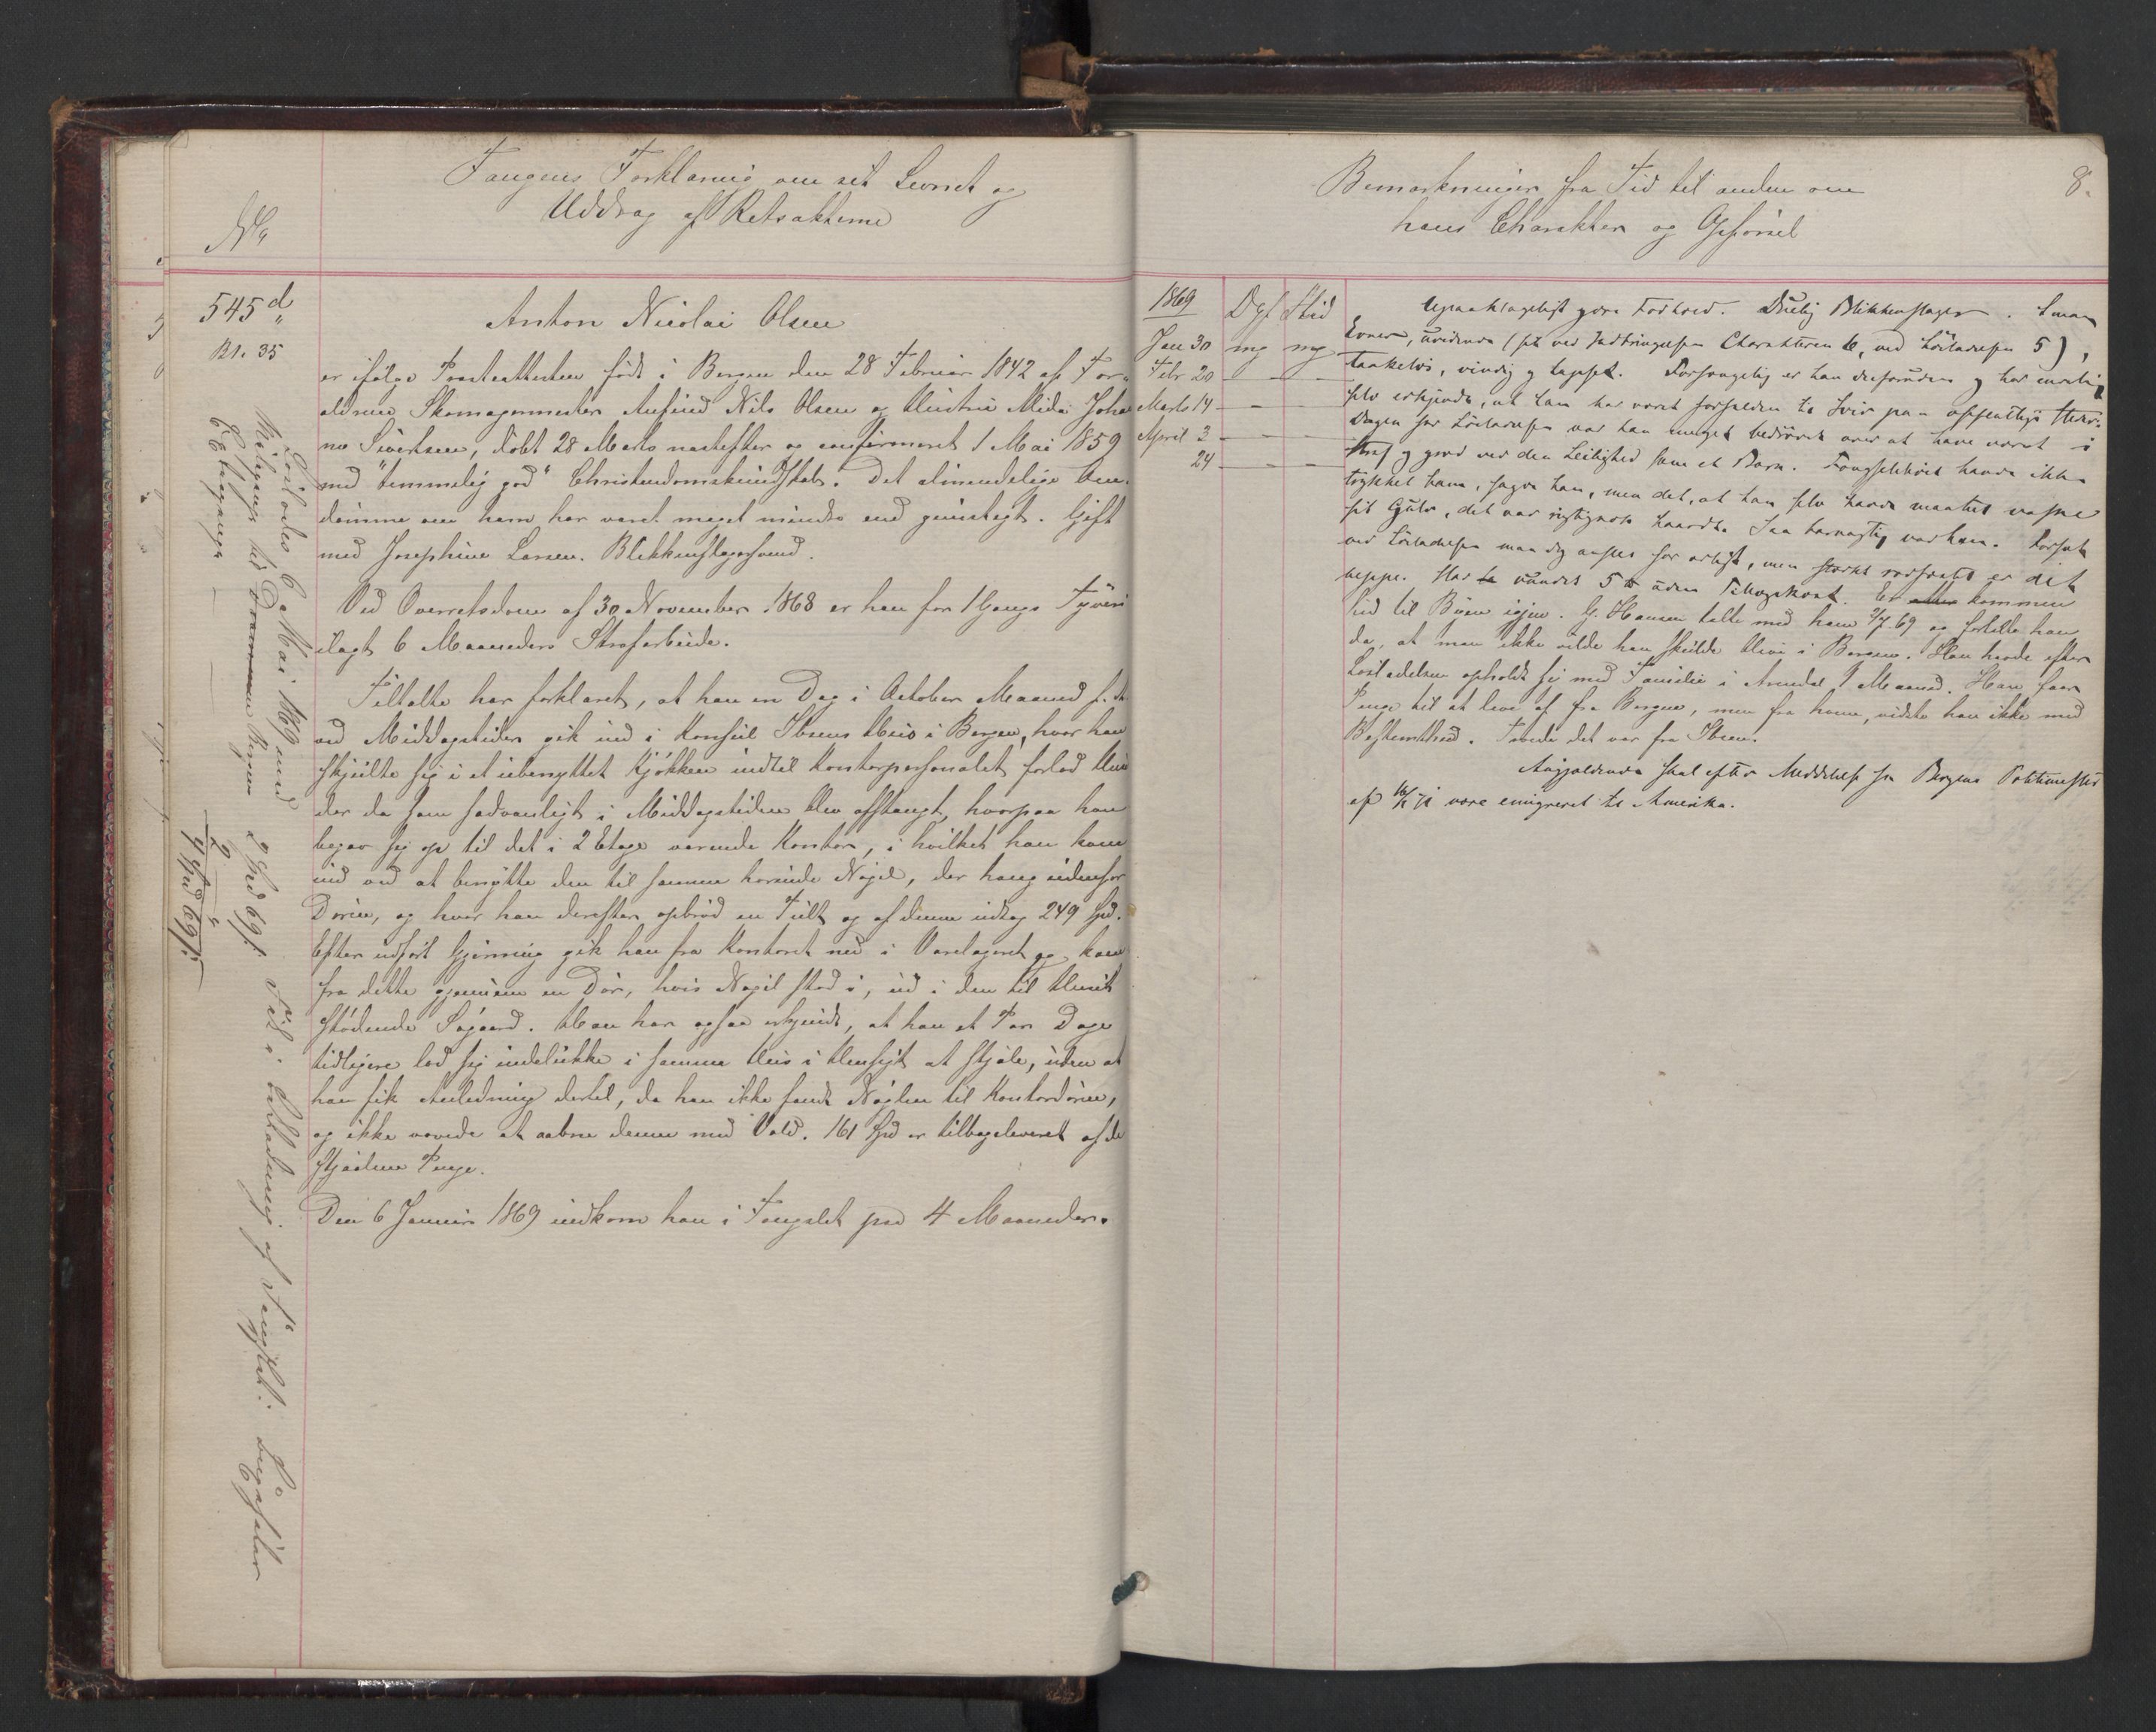 Fangens Forklaring om sit Levnet og
Uddrag af Retsakterne
No
545 d
Bl. 35
Anton Nicolai Olsen
er ifølge Præsteattesten født i Bergen den 28 Februar 1842 af For-
ældrene Skomagermester Nils Olsen og Hustru Johan
ne Sivertsen, döbt 28 Marts næstefter og confirmeret 1 Mai 1859
med "temmelig god" Christendomskundskab. Det almindelige Om-
dømme om ham har været meget mindre end gunstigt. Gift
med Josephine Larsen. Blikkenslagersvend.
Ved Overretsdom af 30 November 1868 er han for 1 Gangs Tyveri
ilagt 6 Maaneders Strafarbeide.
Tiltalte har forklaret, at han en Dag i October Maaned f. A.
ved Middagstiden gik ind i Konsul Ibsens Huus i Bergen, hvor han
skjulte sig i et ubenyttet Kjökken indtil Kontorpersonalet forlod Huset
der da som sædvanligt i Middagstiden blev afstængt, hvorpaa han
begav sig op til det i 2 Etage værende Kontor, i hvilket han kom
ind ved at benytte den til samme hørende Nøgel, der hang udenfor
Dören, og hvor han derefter opbröd en Pult og af denne udtog 249 Spd.
Efter udfört Gjerning gik han fra Kontoret ned i Varelageret og kom
fra dette gjennem en Dör, hvis Nøgel stod i, ud i den til Huset
stödende Søgaard. Han har ogsaa erkjendt, at han et Par Dage
tidligere lod sig indelukke i samme Huus i Hensigt at stjæle, uden at
han fik Anledning dertil, da han ikke fandt Nøglen til Kontordören,
og ikke vovede at aabne denne med Vold. 161 Spd er tilbageleveret af de
stjaalne Penge.
Den 6 Januar 1869 indkom han i Fængslet paa 4 Maaneder.
Lösladtes 6 Mai 1869 med 2 Spd 69 s. i af Fængslet.
til Drammen Bergen
4 Spd 69 s.
Bemærkninger fra Tid til anden om
hans Charakter og Opførsel
8.
1869 Opf Flid
Jan 30 mg mg
Febr 20 — —
Marts 14 — —
April 3 — —
24 — —
Upaaklageligt godt Forhold. Duelig Blikkenslager. Smaa
Evner, uvidende (fik ved Indbringelsen Charakteren 6, ved Löslladelsen 5),
taabelig, og Forfængelig er han desforuden og har
selv erkjendt, at han har været forfalden til paa offentlige Steder.
Dagen før Löslladelsen var han meget bedrövet over at have været i
Straf og græd ved den Leilighed som et Barn. Fængselslivet havde ikke
trykket ham, sagde han, men det, at han selv havde maattet vaske
sit Gulv, det var rigtignok haardt. Saa barnagtig var han. Forsæt
ved Löslladelsen maa dog ansees for ærligt, men er det
neppe. Har vundet 5 uden Kost. Er kommen
hid til Byen igjen. G. Hansen talte med ham 7/7 69 og fortalte han
da, at man ikke vilde han skulde blive i Bergen. Han havde efter
Löslladelsen opholdt sig med Familie i Arendal 1 Maaned. Han faar
Penge til at leve af fra Bergen, men fra hvem, vidste han ikke med
Bestemthed. Troede det var fra Ibsen.
Angjældende skal efter Meddelelse fra Bergens Politimester
af 71 være emigreret til Amerika.